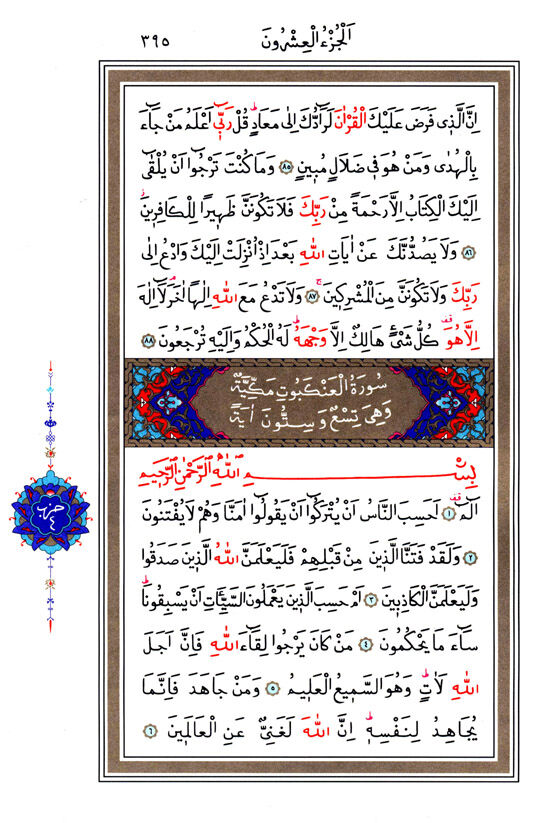 اَلْجُزْءُ الْعِشْرُونَ
٣٩٥
اِنَّ الَّذ۪ى فَرَضَ عَلَيْكَ الْقُرْاٰنَ لَرَٓادُّكَ اِلٰى مَعَادٍۜ قُلْ رَبّ۪ٓى اَعْلَمُ مَنْ جَٓاءَ
بِالْهُدٰى وَمَنْ هُوَ ف۪ى ضَلَالٍ مُب۪ينٍ ﴿٨٥﴾ وَمَا كُنْتَ تَرْجُٓوا اَنْ يُلْقٰٓى
اِلَيْكَ الْكِتَابُ اِلَّا رَحْمَةً مِنْ رَبِّكَ فَلَا تَكُونَنَّ ظَه۪يرًا لِلْكَافِر۪ينَۘ
﴿٨٦﴾ وَلَا يَصُدُّنَّكَ عَنْ اٰيَاتِ اللّٰهِ بَعْدَ اِذْ اُنْزِلَتْ اِلَيْكَ وَادْعُ اِلٰى
رَبِّكَ وَلَا تَكُونَنَّ مِنَ الْمُشْرِك۪ينَۚ ﴿٨٧﴾ وَلَا تَدْعُ مَعَ اللّٰهِ اِلٰهًا اٰخَرَۢ لَٓا اِلٰهَ
اِلَّا هُوَ۠ كُلُّ شَىْءٍ هَالِكٌ اِلَّا وَجْهَهُۜ لَهُ الْحُكْمُ وَاِلَيْهِ تُرْجَعُونَ ﴿٨٨﴾
سُورَةُ الْعَنْكَبُوتِ مَكِّيَّةٌ
وَهِىَ تِسْعٌ وَسِتُّونَ اٰيَةً
بِسْمِ اللّٰهِ الرَّحْمٰنِ الرَّح۪يمِ
الٓمٓ ﴿١﴾ اَحَسِبَ النَّاسُ اَنْ يُتْرَكُٓوا اَنْ يَقُولُٓوا اٰمَنَّا وَهُمْ لَا يُفْتَنُونَ
﴿٢﴾ وَلَقَدْ فَتَنَّا الَّذ۪ينَ مِنْ قَبْلِهِمْ فَلَيَعْلَمَنَّ اللّٰهُ الَّذ۪ينَ صَدَقُوا
وَلَيَعْلَمَنَّ الْكَاذِب۪ينَ ﴿٣﴾ اَمْ حَسِبَ الَّذ۪ينَ يَعْمَلُونَ السَّيِّـَٔاتِ اَنْ يَسْبِقُونَاۜ
سَٓاءَ مَا يَحْكُمُونَ ﴿٤﴾ مَنْ كَانَ يَرْجُوا لِقَٓاءَ اللّٰهِ فَاِنَّ اَجَلَ
اللّٰهِ لَاٰتٍۜ وَهُوَ السَّم۪يعُ الْعَل۪يمُ ﴿٥﴾ وَمَنْ جَاهَدَ فَاِنَّمَا
يُجَاهِدُ لِنَفْسِه۪ۜ اِنَّ اللّٰهَ لَغَنِىٌّ عَنِ الْعَالَم۪ينَ ﴿٦﴾
حزب
٤